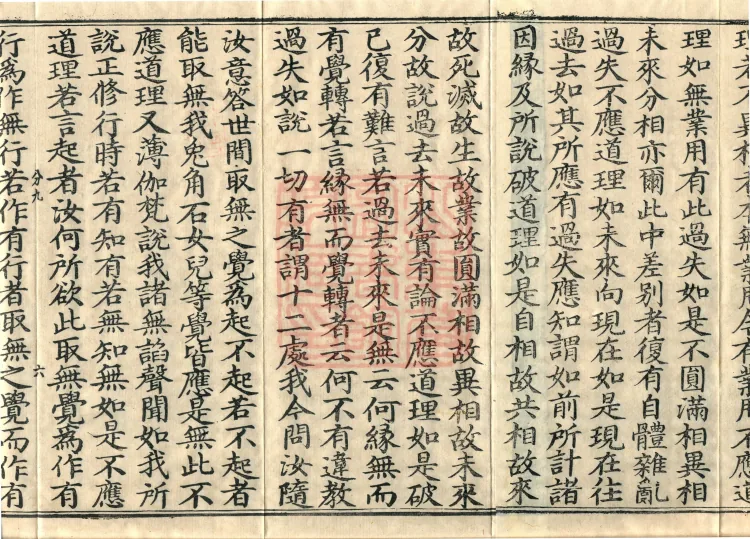 無業用今有業用不應道
理如無業用有此過失如是不圓滿相異相
未來分相亦爾此中差別者復有自體雜亂
過失不應道理如未來向現在如是現在往
過去如其所應有過失應知謂如前所計諸
因緣及所說破道理如是自相故共相故來
故死滅故生故業故圓滿相故異相故未來
分故說過去未來實有論不應道理如是破
已復有難言若過去未來是無云何緣無而
有覺轉若言緣無而覺轉者云何不有違教
過失如說一切有者謂十二處我今問汝隨
汝意答世間取無之覺爲起不起若不起者
能取無我兔角石女兒等覺皆應是無此不
應道理又薄伽梵說我諸無諂聲聞如我所
說正修行時若有知有若無知無如是不應
道理若言起者汝何所欲此取無覺爲作有
分九 六
行爲作無行若作有行者取無之覺而作有